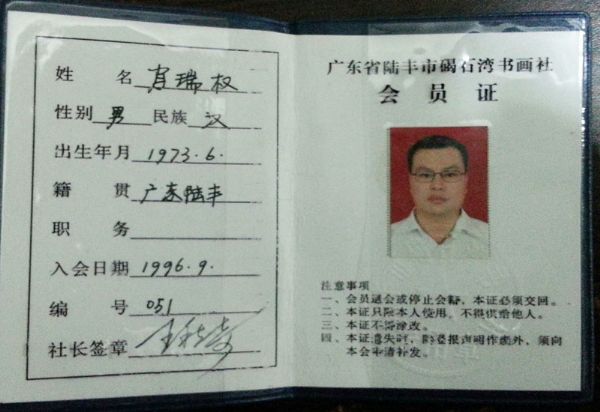 姓名 肖瑞权
性别 男 民族 汉
出生年月 1973.6.
籍贯 广东陆丰
职务
入会日期 1996.9.
编号 051
社长签章
广东省陆丰市碣石湾书画社
会员证
注意事项
一、会员退会或停止会籍，本证必须交回。
二、本证只限本人使用，不得供给他人。
三、本证不得涂改。
四、本证遗失时，除登报声明作废外，须向
本会申请补发。